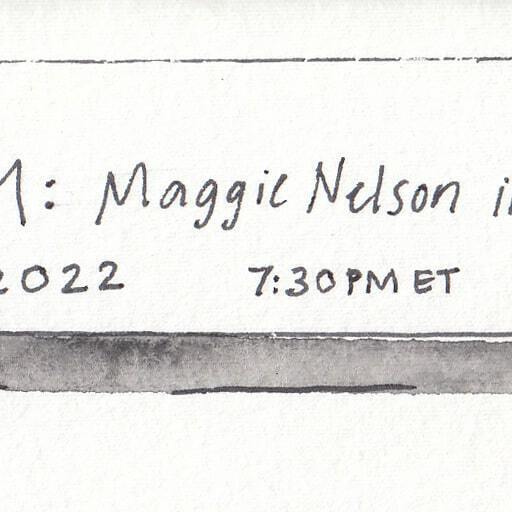 M: Maggie Nelson in
2022 7:30PM ET